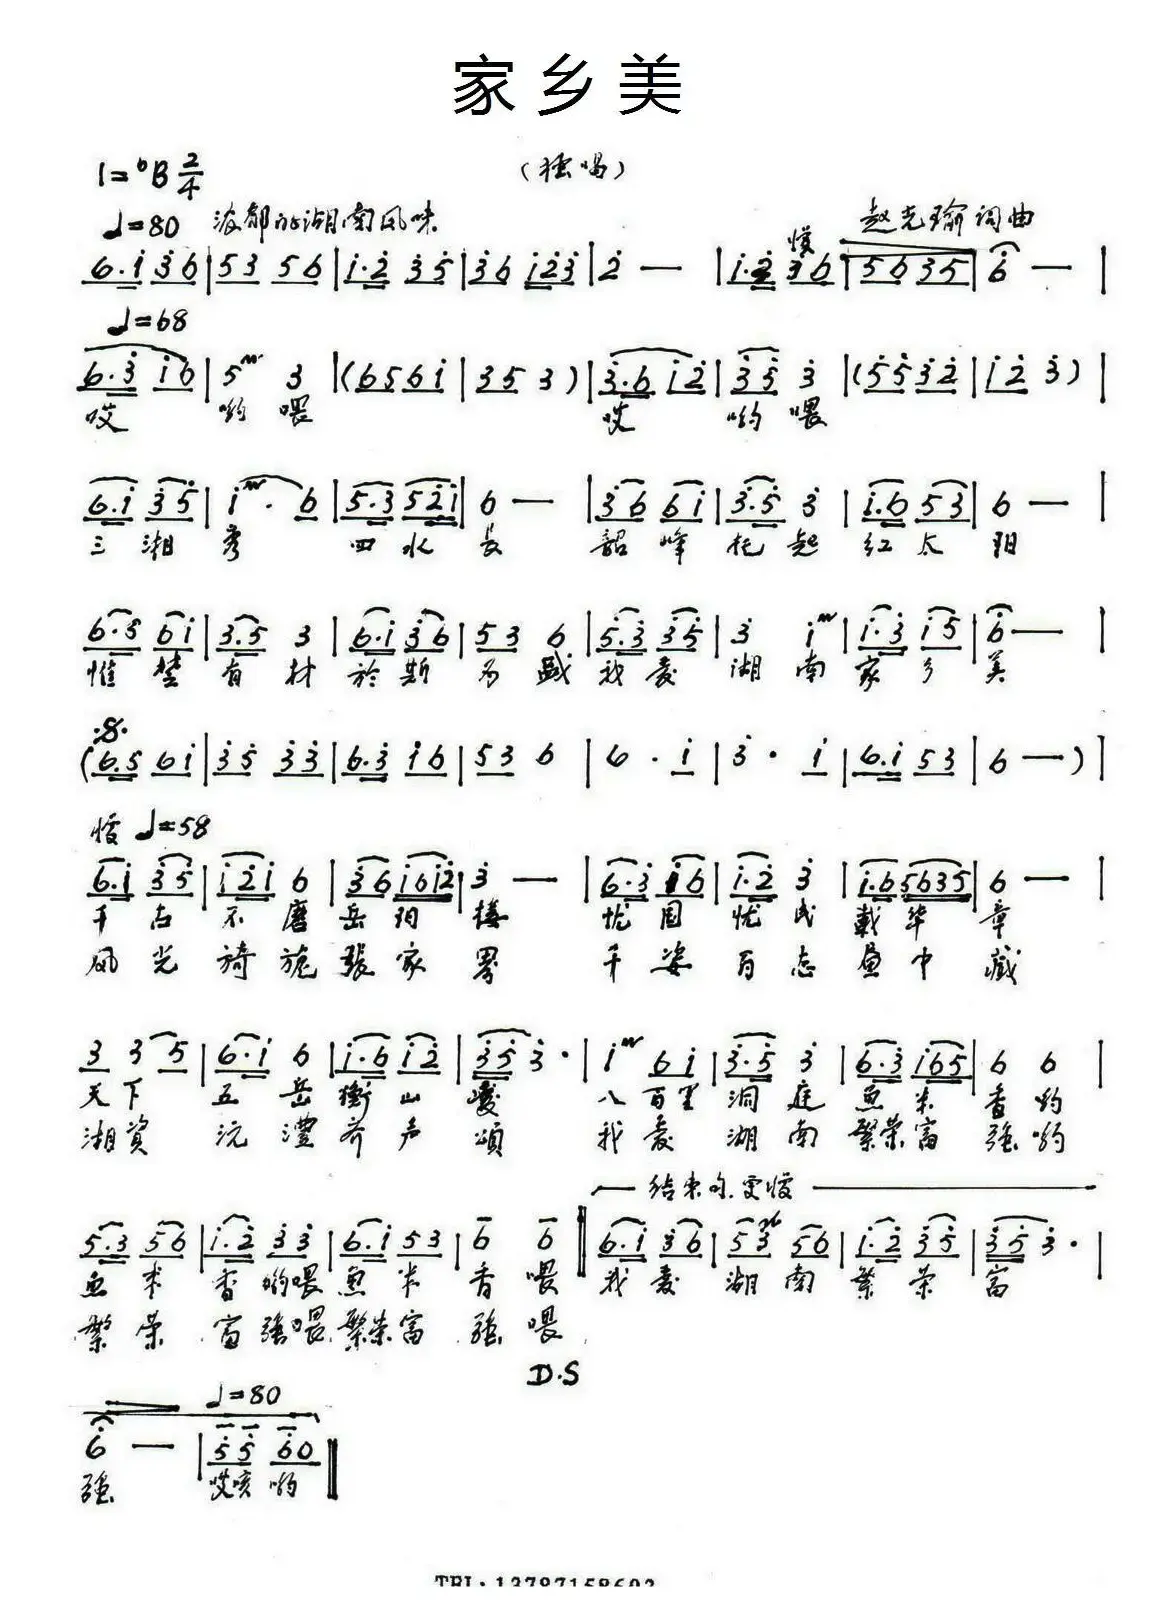 家乡美
1=♭B 2/4
（独唱）
♩=80 浓郁的湖南风味
慢
赵克瑜词曲
6·i 3 6 | 5 3 5 6 | i·2 3 5 | 3 6 i 2 3 | 2 — | i·2 3 6 | 5 6 3 5 | 6 — |
♩=68
6·3 i 6 | 5 3 | (6 5 6 i | 3 5 3) | 3·6 i 2 | 3 5 3 | (5 5 3 2 | i 2 3) |
哎 哟 喂 哎 哟 喂
6·i 3 5 | i· 6 | 5·3 5 2 i | 6 — | 3 6 6 i | 3·5 3 | i·6 5 3 | 6 — |
三 湘 秀 四 水 長 韶 峰 托 起 红 太 阳
6·5 6 i | 3·5 3 | 6·i 3 6 | 5 3 6 | 5·3 3 5 | 3 i | i·3 i 5 | 6 — |
惟 楚 有 材 於 斯 為 盛 我 爱 湖 南 家 乡 美
(6·5 6 i | 3 5 3 3 | 6·3 i 6 | 5 3 6 | 6· i | 3· i | 6·i 5 3 | 6 — ) |
慢 ♩=58
6·i 3 5 | i 2 i 6 | 3 6 i 6 i 2 | 3 — | 6·3 i 6 | i·2 3 | i·6 5 6 3 5 | 6 — |
千 古 不 磨 岳 阳 楼 忧 国 忧 民 载 华 章
风 光 旖 旎 張 家 界 千 姿 百 态 画 中 藏
3 3 5 | 6·i 6 | i·6 i 2 | 3 5 3· | i 6 i | 3·5 3 | 6·3 i 6 5 | 6 6 |
天 下 五 岳 衡 山 峻 八 百 里 洞 庭 鱼 米 香 哟
湘 資 沅 澧 齐 声 頌 我 爱 湖 南 繁 荣 富 强 哟
结束句 更慢
5·3 5 6 | i·2 3 3 | 6·i 5 3 | 6 6 ‖ 6·i 3 6 | 5 3 5 6 | i·2 3 5 | 3 5 3· |
鱼 米 香 哟 喂 鱼 米 香 喂 我 爱 湖 南 繁 荣 富
繁 荣 富 强 喂 繁 荣 富 强 喂
D.S
♩=80
6 — | 5 5 6 0 ‖
强 哎 咳 哟
TEL:13787158603